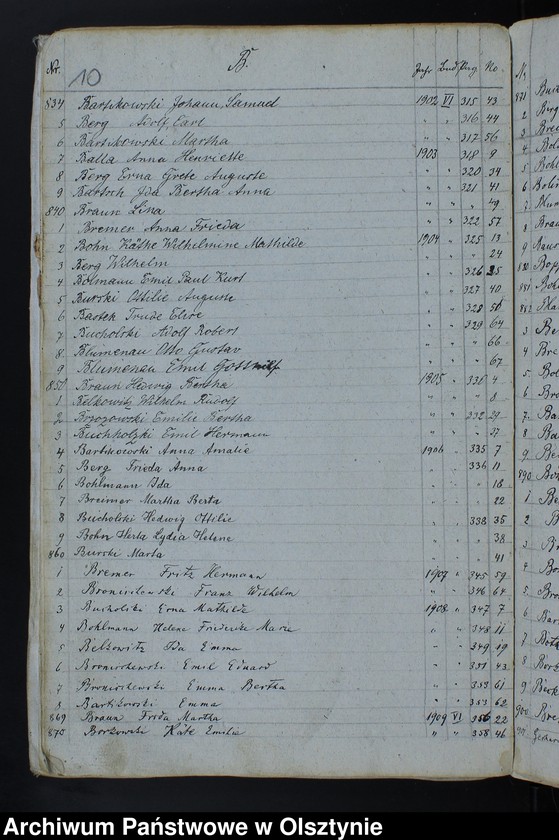 10 B.
Nr. Jahr Bud. Pag. No.
834 Bartkowski Johann, Samuel 1902 VI 315 43
5 Berg Adolf, Carl " " 316 44
6 Bartkowski Martha " " 317 56
7 Balla Anna Henriette 1903 " 318 9
8 Berg Erna Grete Auguste " " 320 34
9 Bartsch Ida Bertha Anna " " 321 41
840 Braun Lina " " " 49
1 Bremer Anna Frieda " " 322 57
2 Bohn Käthe Wilhelmine Mathilde 1904 " 325 13
3 Berg Wilhelm " " " 24
4 Bolmann Emil Paul Kurt " " 326 25
5 Burski Ottilie Auguste " " 327 40
6 Bartek Trude " " 328 50
7 Bucholski Adolf Robert " " 329 64
8 Blumenau Otto Gustav " " " 66
9 Blumenau Emil " " " 67
850 Braun Hedwig Bertha 1905 " 330 4
1 Belkowitz Wilhelm Rudolf " " " 8
2 Brzozowski Emilie Bertha " " 232 29
3 Buchholzki Emil Hermann " " " 37
4 Bartikowski Anna Amalie 1906 " 335 7
5 Berg Frieda Anna " " 336 11
6 Bohlmann Ida " " " 18
7 Breimer Martha Berta " " " 22
8 Bucholski Hedwig Ottilie " " 338 35
9 Bohn Herta Lydia Helene " " " 38
860 Burski Marta " " " 41
1 Bremer Fritz Hermann 1907 " 345 59
2 Bronislawski Franz Wilhelm " " 346 64
3 Bucholski Erna Mathilde 1908 " 347 7
4 Bohlmann Helene Friederike Marie " " 348 11
5 Belkowitz Ida Emma " " 349 19
6 Bronischewski Emil Eduard " " 351 43
7 Bronischewski Emma Bertha " " 353 61
8 Bartikowski Emma " " 353 62
869 Braun Frida Martha 1909 VI 356 22
870 Borkowski Käte Emilie " " 358 46
Archiwum Państwowe w Olsztynie